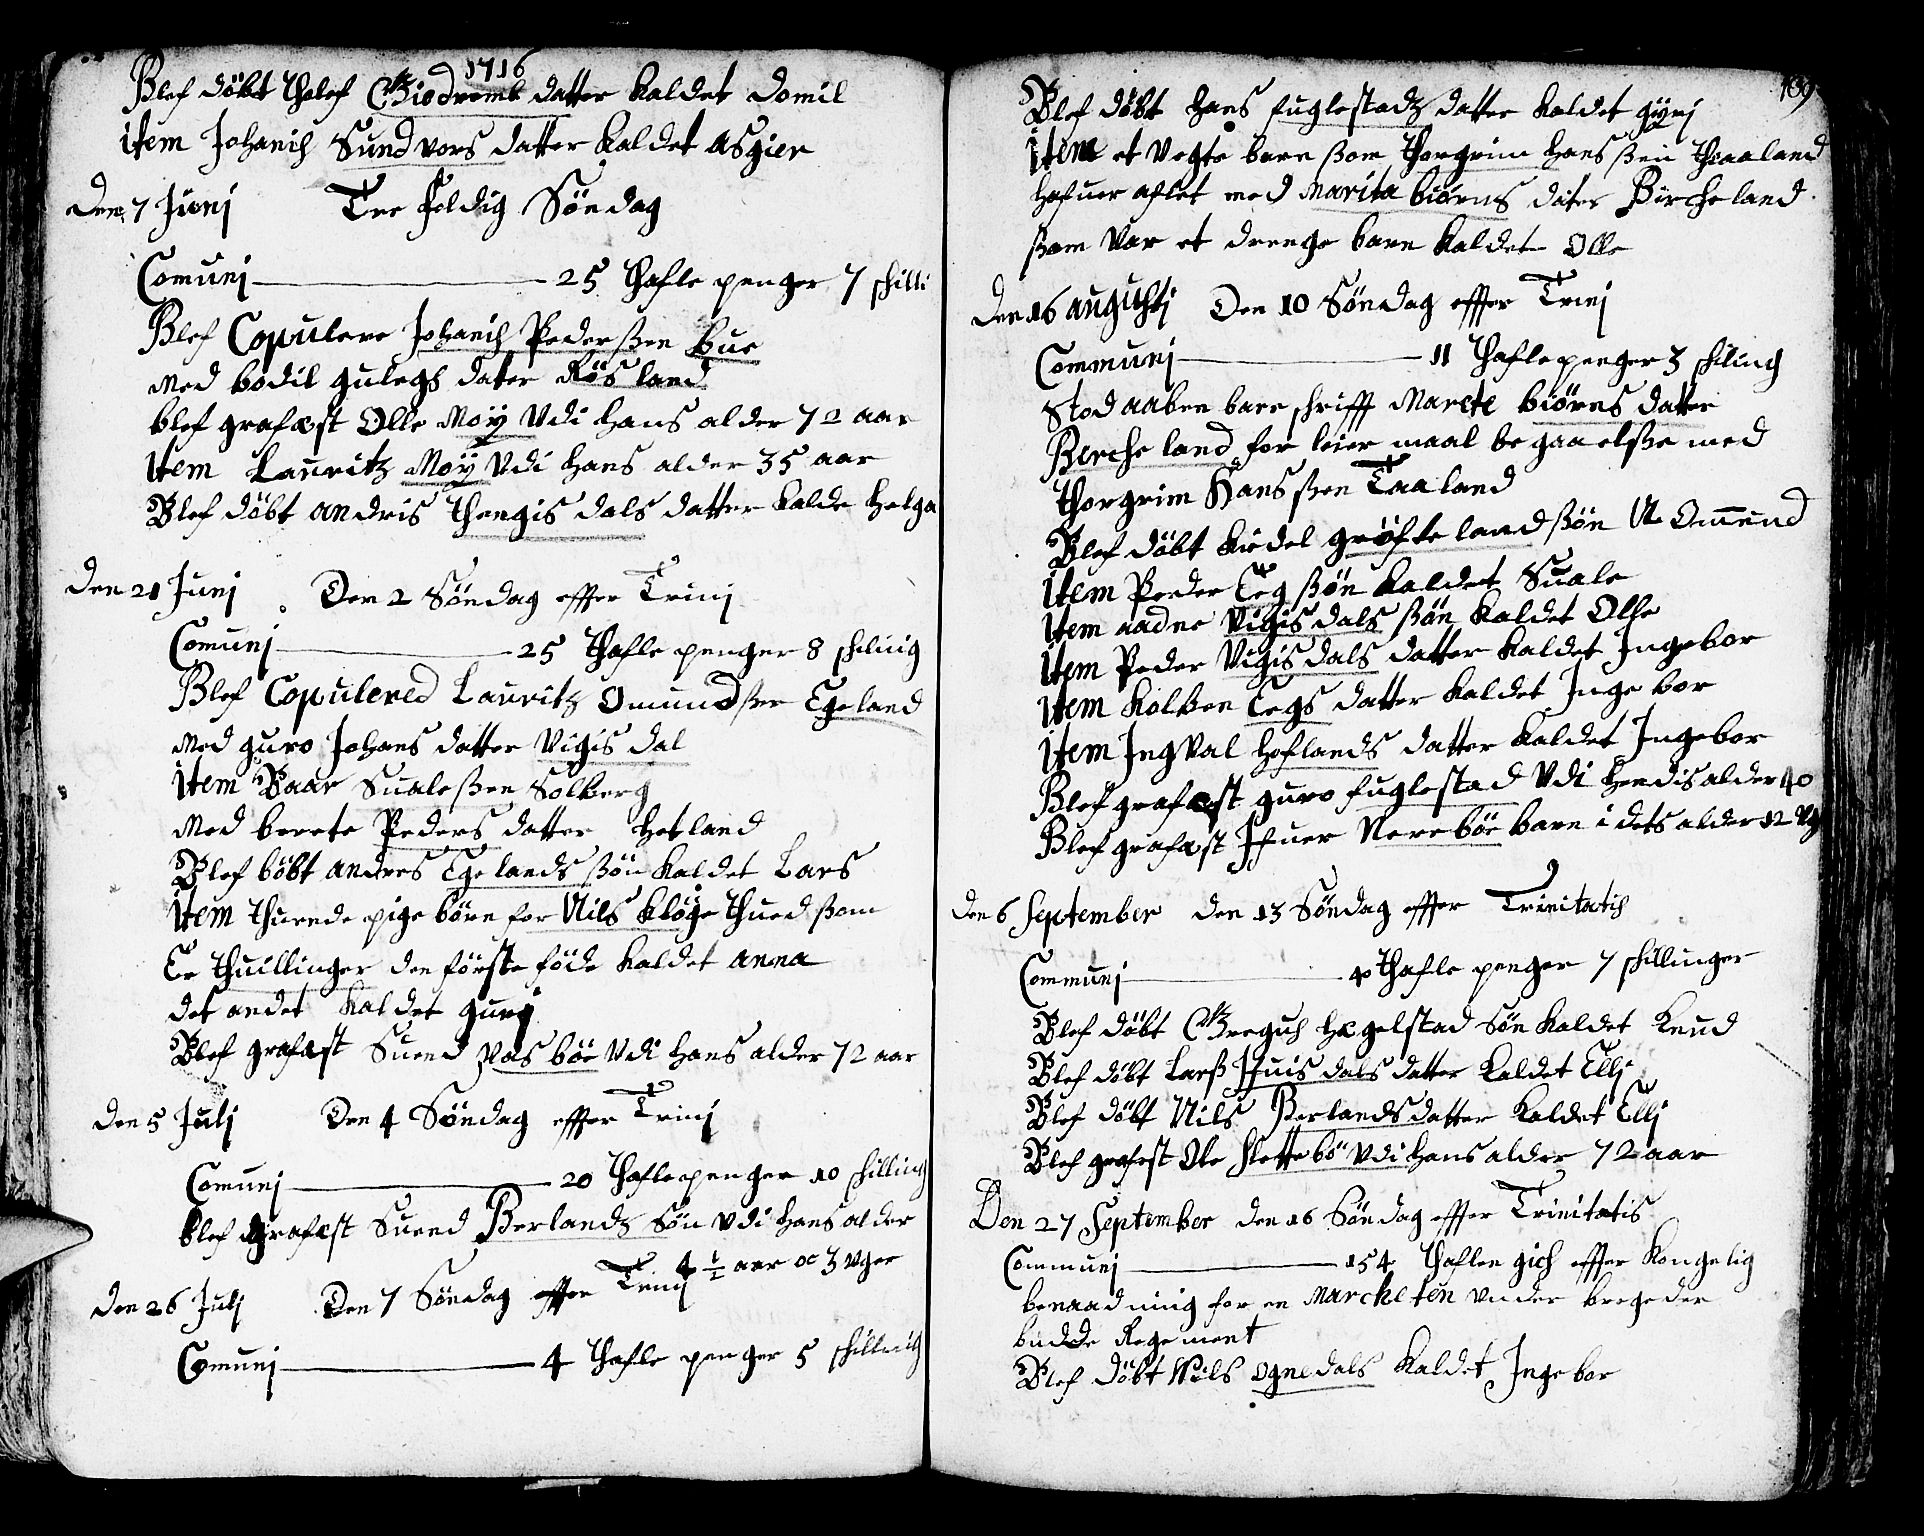 1716
Blef döbt Thelef Giedremb datter kaldet Domil
item Johanis Sundvors datter kaldet Asgier
Den 7 Junj Tre foldig Söndag
Comunj 25 Thafle penger 7 schilli
Blef Copulere Johanis Pederßen bue
Med bodil gulegs dater Rösland
blef grafæst Olle Moÿ Vdi hans alder 72 aar
Item Lauritz Moÿ Vdi hans alder 35 aar
Blef döbt andris Thengis dals datter kalde Helga
Den 21 Junj Den 2 Söndag effter Trinj
Comunj 25 Thafle penger 8 schilinig
Blef Copulered Lauritz Omundßen Egeland
Med guro Johans datter Vigis dal
Item Baar Sualeßen Solberg
Med berete Peders datter Hetland
Blef böbt andres Egelands ßön kaldet Lars
Item Thuende pige börn for Nils klöge Thued ßom
Er Thuillinger den förste föde kaldet anna
det andet kaldet gurj
Blef grafæst Suend Vas böe Vdi hans alder 72 aar
Den 5 Julj Den 4 Söndag effter Trinj
Comunj 20 Thaflepenger 10 schilling
blef grafæst Suend Berlandz Sön Vdi hans alder
4 1/2 aar oc 3 Vger
Den 26 Julj Den 7 Söndag effter Trinj
Comunj 4 Thafle penger 5 schillinig
189
Blef döbt hans fuglestadz datter kaldet gÿrj
Item et Vegte barn ßom Thorgrim hansßen Thaaland
hafuer aflet med Marita biörns dater Bircheland
ßom Var et drenge barn kaldet Olle
Den 16 augustj Den 10 Söndag effter Trinj
Communj 11 Thaflepenger 3 schiling
Stod aabenbare schrifft Marete biörns datter
Bercheland for leiermaal begaaelße med
Thorgrim Hansßen Taaland
Blef döbt kiedel gröfteland ßön N Omund
Item Peder Eeg ßön kaldet Suale
Item aadne Vigis dals ßön kaldet Olle
Item Peder Vigis dals datter kaldet Ingebor
Item Kolben Eegs datter kaldet Ingebor
Item IngVal hoflands datter kaldet Ingebor
Blef grafæst guro fuglestad Vdi hendis alder 40
Blef grafæst Ifuer Nereböe barn i dets alder 12 Vg
Den 6 September Den 13 Söndag effter Trinitatis
Communj 40 Thafle penger 7 schillinger
Blef döbt Gregus Hægelstad Sön kaldet Knud
Blef döbt Larß Ifuis dals datter kaldet Ellj
Blef döbt Nils Berlands datter kaldet Ellj
Blef grafest Ole slettebö Vdi hans alder 72 aar
Den 27 September den 16 Söndag effter Trinitatis
Communj 154 Thaflen gich effter kongelig
benaadning for en Marcheten Vnder bregeder
budde Regement
Blef döbt Nils Ognedals kaldet Ingebor